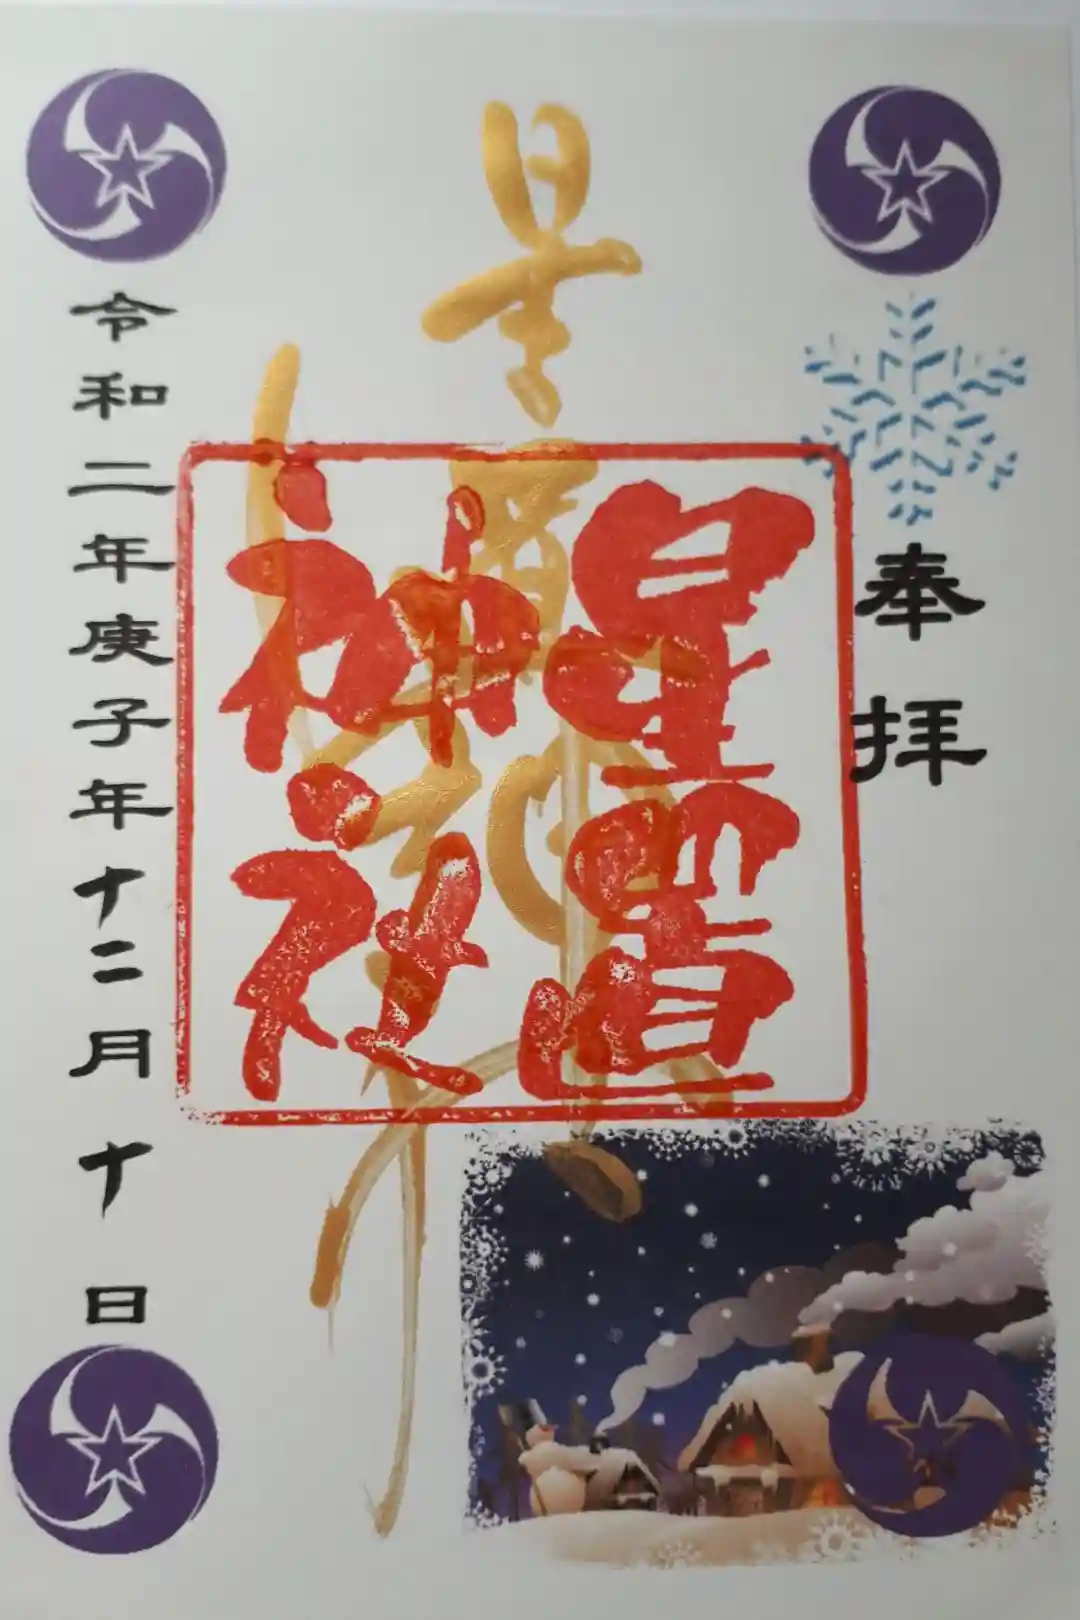 奉拝
星置神社
星置
神社
令和二年庚子年十二月十日